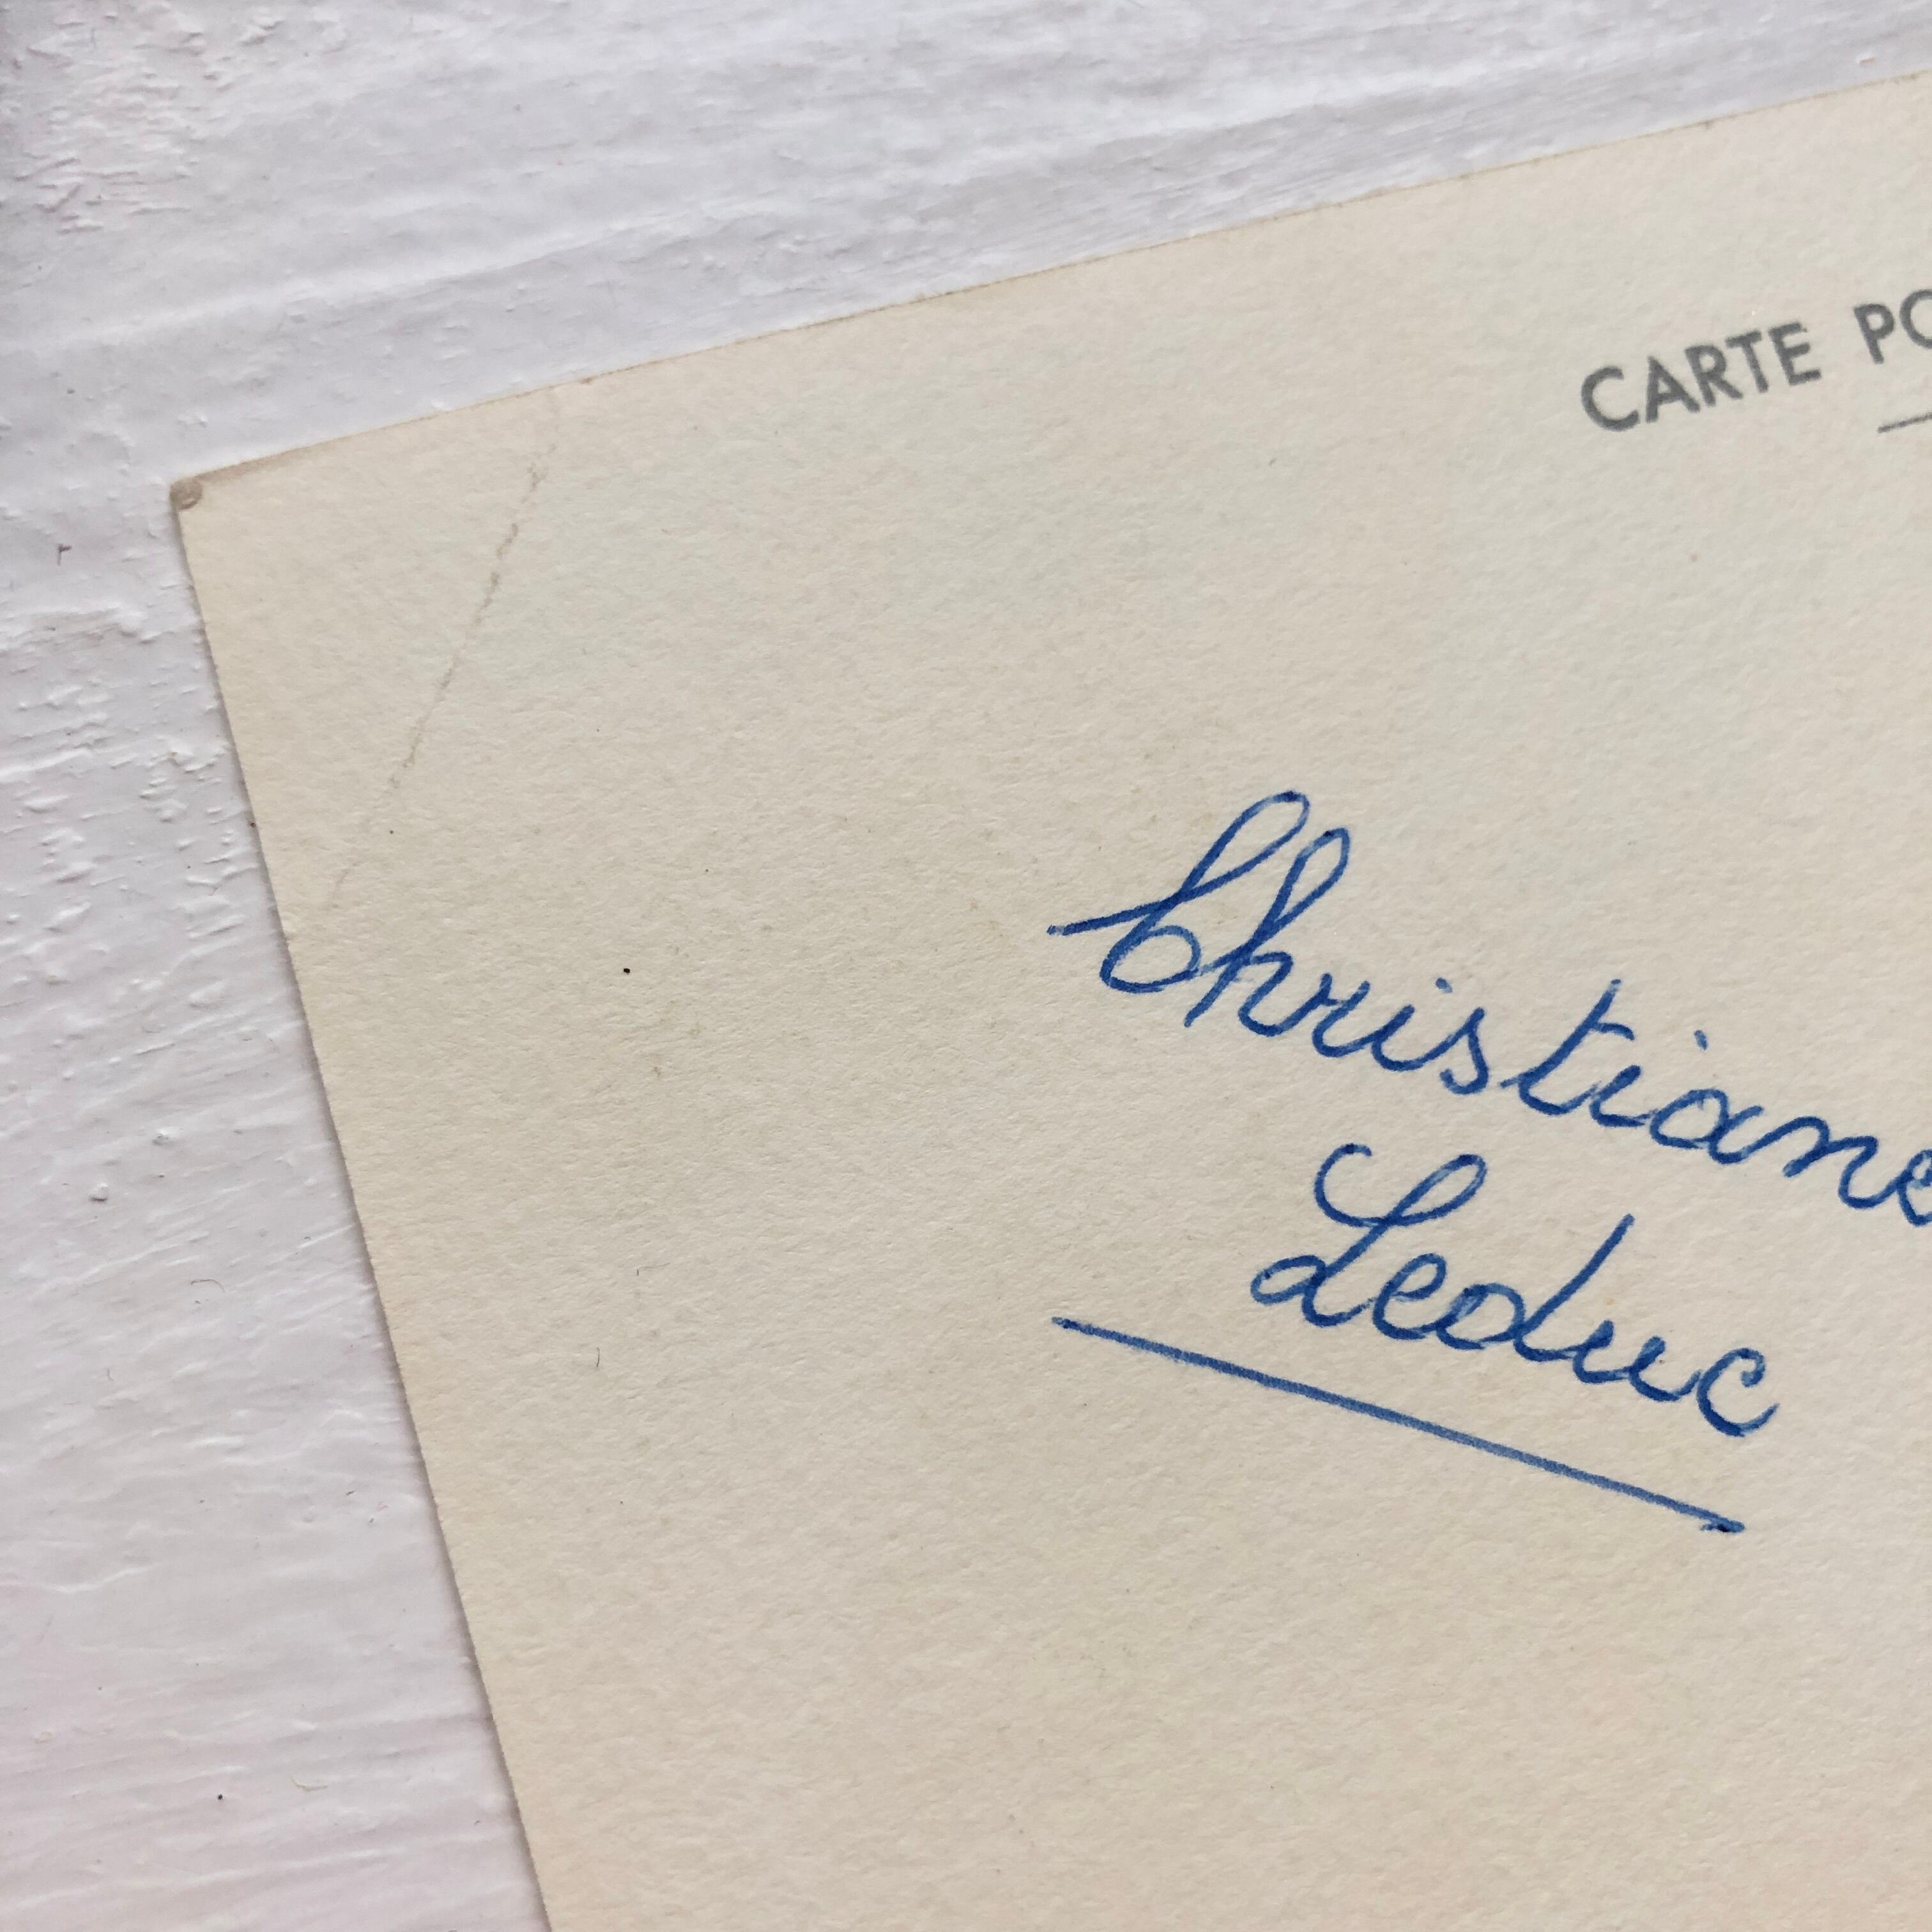 CARTE PO
Christiane
Leduc